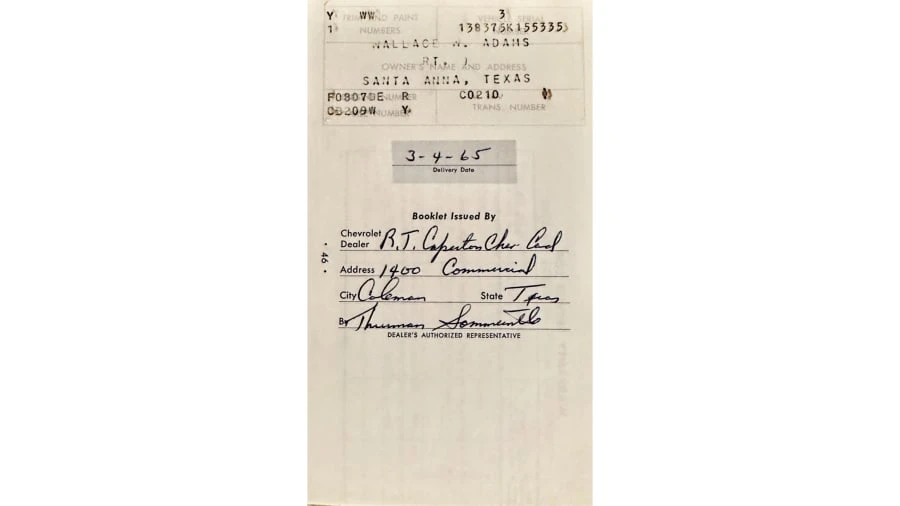 Y WW 3
TRIM AND PAINT VEHICLE SERIAL
1 NUMBERS 138375K155335
WALLACE W. ADAMS
RT. 1
OWNER'S NAME AND ADDRESS
SANTA ANNA, TEXAS
F0807DE R C021D
NUMBER TRANS. NUMBER
Y
NUMBER
3-4-65
Delivery Date
Booklet Issued By
Chevrolet
Dealer R.T. Caperton Chev Cad
Address 1400 Commercial
City Coleman State Texas
By Thurman
DEALER'S AUTHORIZED REPRESENTATIVE
• 46 •